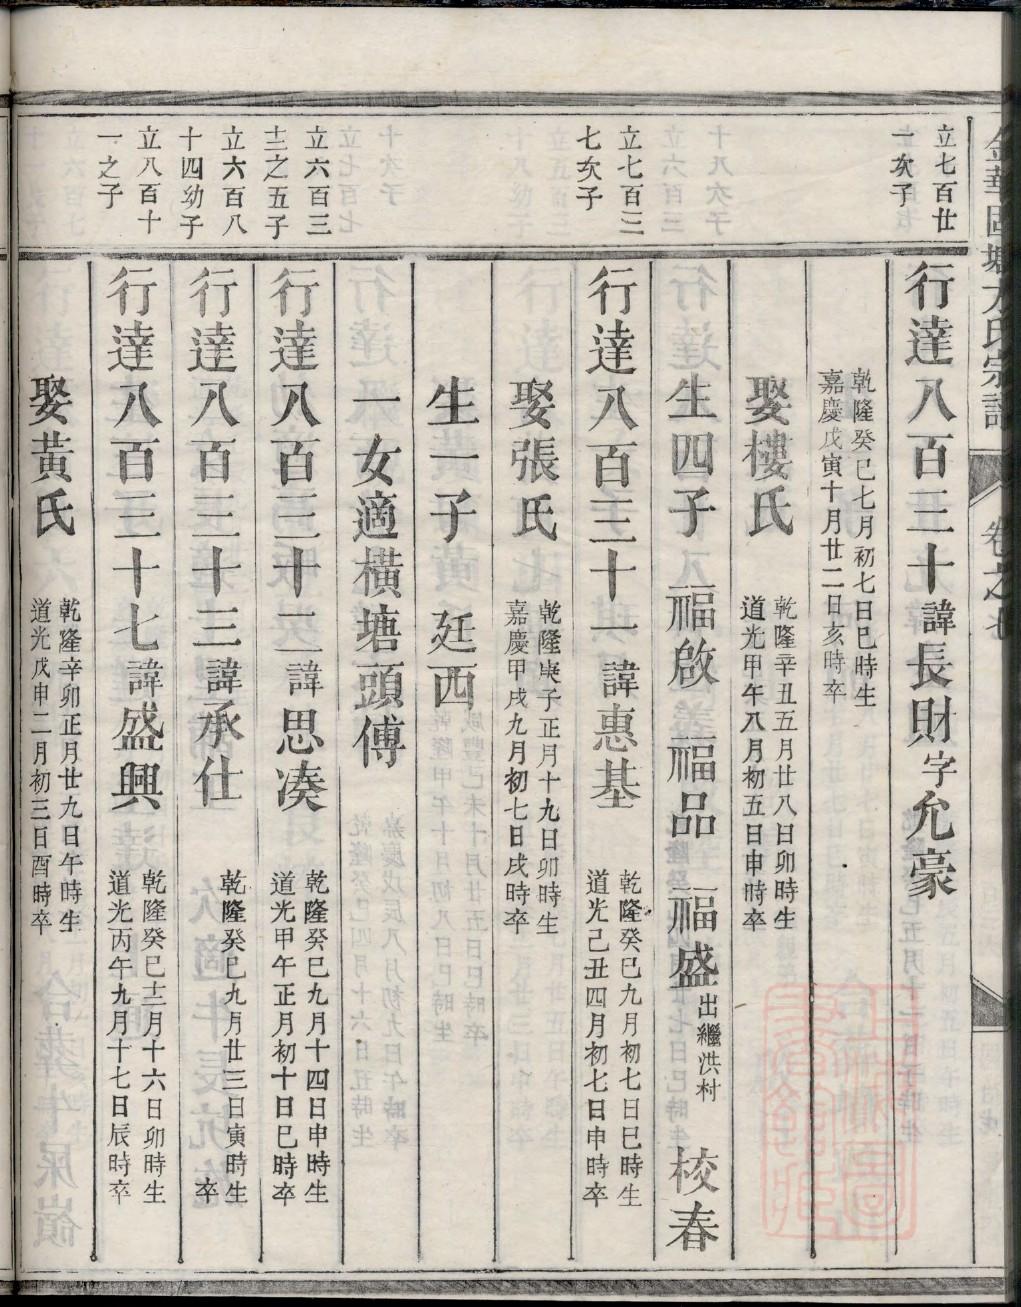 金華
方氏宗譜
卷之七
立七百廿
一次子
行達八百三十諱長財字允豪
乾隆癸巳七月初七日巳時生
嘉慶戊寅十月廿二日亥時卒
娶樓氏
乾隆辛丑五月廿八日卯時生
道光甲午八月初五日申時卒
生四子 福啟 福品 福盛出繼洪村 校春
立七百三
七次子
行達八百三十一諱惠基
乾隆癸巳九月初七日巳時生
道光己丑四月初七日申時卒
娶張氏
乾隆庚子正月十九日卯時生
嘉慶甲戌九月初七日戌時卒
生一子 廷西
一女適橫塘頭傅
立六百三
十三之五子
行達八百三十二諱思湊
乾隆癸巳九月十四日申時生
道光甲午正月初十日巳時卒
立六百八
十四幼子
行達八百三十三諱承仕
乾隆癸巳九月廿三日寅時生
卒
立八百十
一之子
行達八百三十七諱盛興
乾隆癸巳十二月十六日卯時生
道光丙午九月十七日辰時卒
娶黃氏
乾隆辛卯正月廿九日午時生
道光戊申二月初三日酉時卒